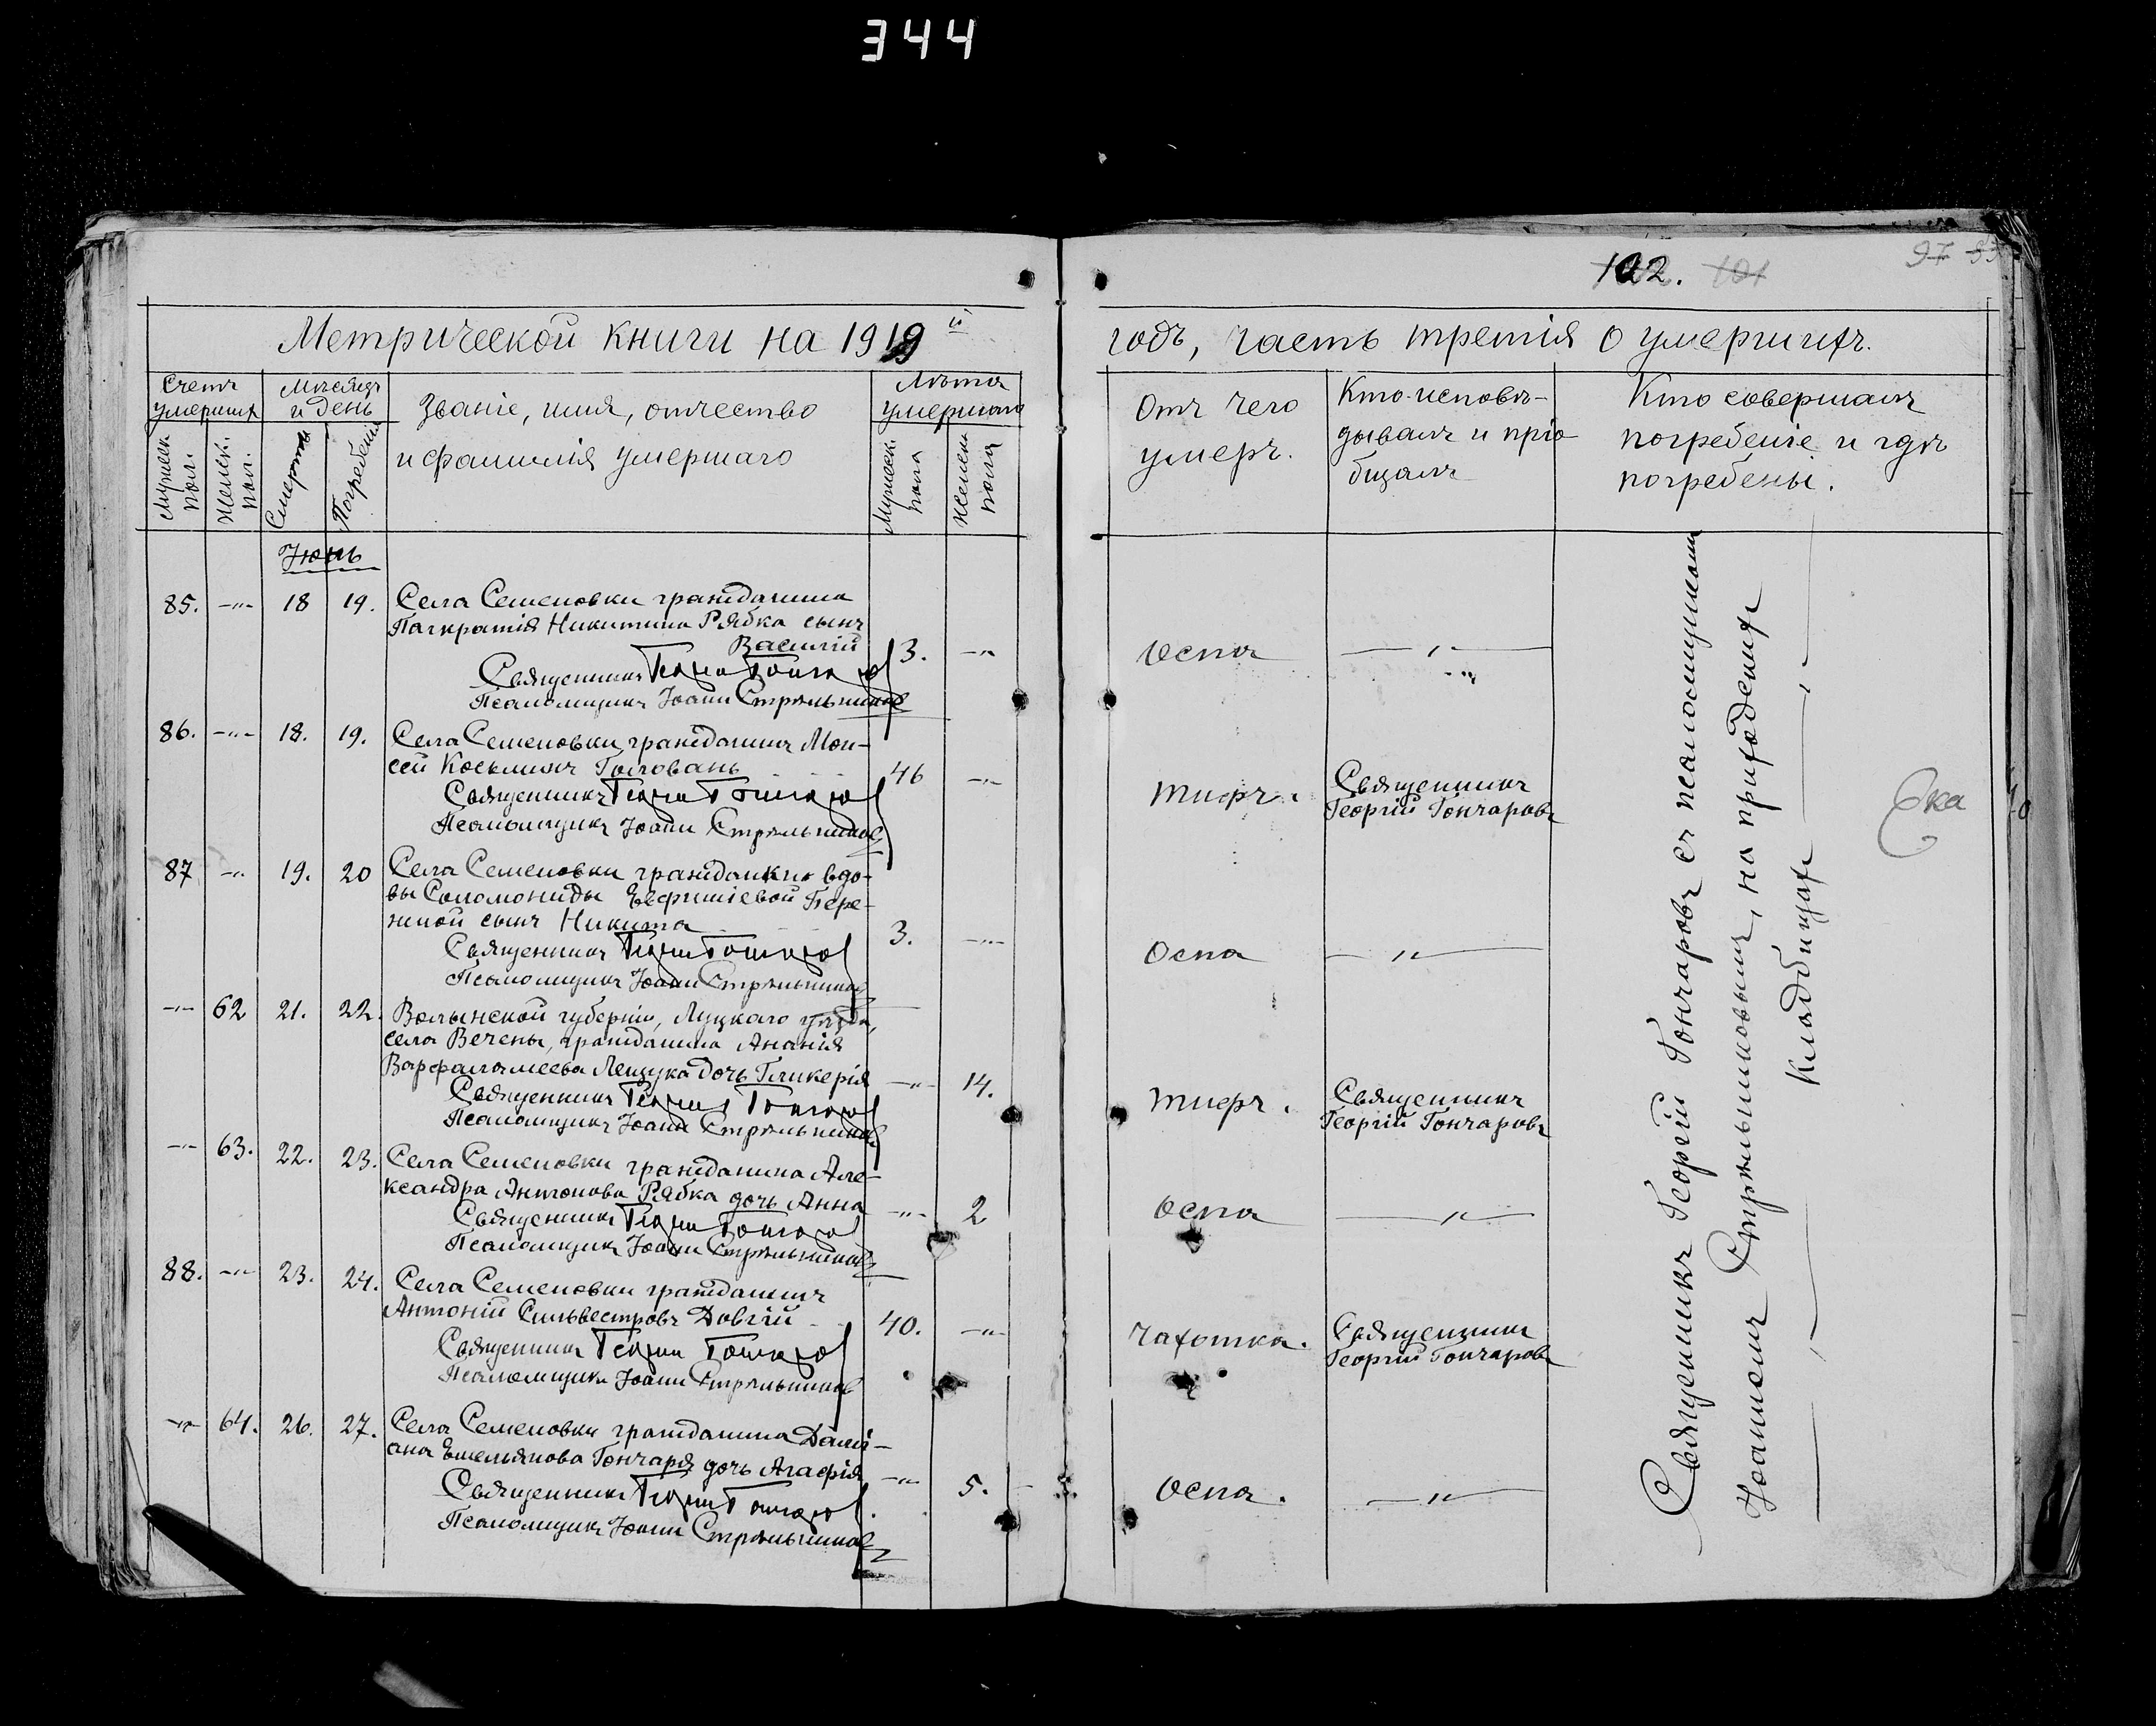 344
102. 101
97
Метрической книги на 1919 й
годъ, часть третія о умершихъ.
Счетъ умершихъ
Мужеск. пол.
Женск. пол.
Мѣсяцъ и день
Смерти
Погребенія
Званіе, имя, отчество
и фамилія умершаго
Лѣта умершаго
Мужеск. пола
Женск. пола
Отъ чего
умеръ.
Кто исповѣ-
дывалъ и прiо-
бщалъ
Кто совершалъ
погребеніе и гдѣ
погребены.
Іюнь
85. -"- 18 19. Села Семеновки гражданина
Панкратія Никитина Рябка сынъ
Василій 3. -"- Оспа -"-
Священникъ Георгій Гончаров
Псаломщикъ Іоаннъ Стрѣльников
86. -"- 18. 19. Села Семеновки, гражданинъ Мои-
сей Косьминъ Головань 46 -"- Тифъ.
Священникъ
Георгій Гончаровъ
Священникъ Георгій Гончаров
Псаломщикъ Іоаннъ Стрѣльников
87 -"- 19. 20 Села Семеновки гражданки вдо-
вы Соломониды Евфиміевой Пере-
жной сынъ Никита 3. -"- Оспа -"-
Священникъ Георгій Гончаров
Псаломщикъ Іоаннъ Стрѣльников
-"- 62 21. 22. Волынской губерніи, Луцкаго уѣзда,
села Вечены, гражданина Ананія
Варфаламеева Лещука дочь Гликерія -"- 14. Тифъ.
Священникъ
Георгій Гончаровъ
Священникъ Георгій Гончаров
Псаломщикъ Іоаннъ Стрѣльников
-"- 63. 22. 23. Села Семеновки гражданина Але-
ксандра Антонова Рябка дочь Анна -"- 2 Оспа -"-
Священникъ Георгій Гончаров
Псаломщикъ Іоаннъ Стрѣльников
88. -"- 23. 24. Села Семеновки гражданинъ
Антоній Сильвестровъ Довгій 40. -"- Чахотка.
Священникъ
Георгій Гончаровъ
Священникъ Георгій Гончаров
Псаломщикъ Іоаннъ Стрѣльников
-"- 64. 26. 27. Села Семеновки гражданина Дамі-
ана Емельянова Гончаря дочь Агафія -"- 5. Оспа. -"-
Священникъ Георгій Гончаров
Псаломщикъ Іоаннъ Стрѣльников
Священникъ Георгій Гончаровъ съ псаломщикомъ
Іоанномъ Стрѣльниковымъ, на приходскихъ
кладбищахъ